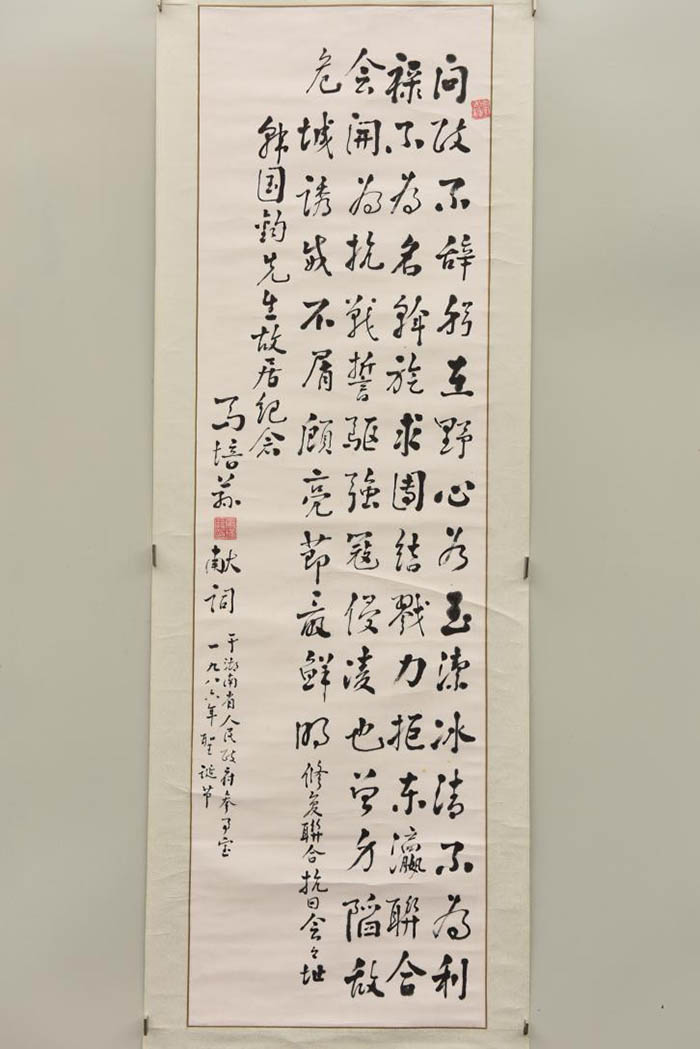 问政不辞躬在野心若玉洁冰清不为利
禄不为名斡旋求团结戮力拒东瀛聯合
会開为抗战誓驱强寇侵凌也曾身陷敌
危城诱威不屑顾亮节最鲜明 修复聯合抗日会々址
韩国钧先生故居纪念
马培荪 献词
于湖南省人民政府参事室
一九八六年聖诞节